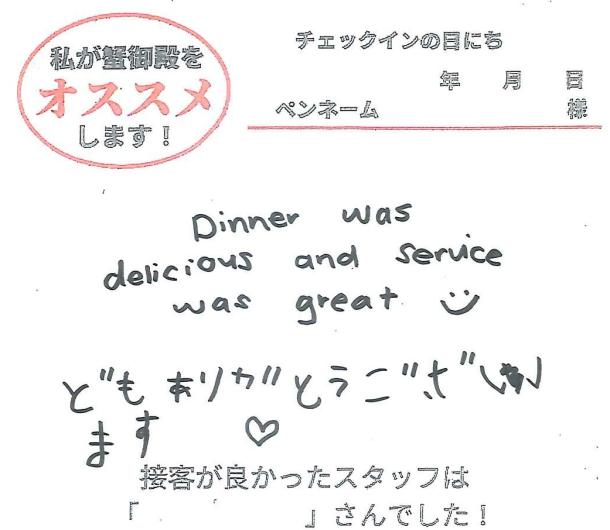 私が蟹御殿を
オススメ
します！
チェックインの日にち
年 月 日
ペンネーム 様
Dinner was
delicious and service
was great
ども ありがとうござい
ます
接客が良かったスタッフは
「 」さんでした！